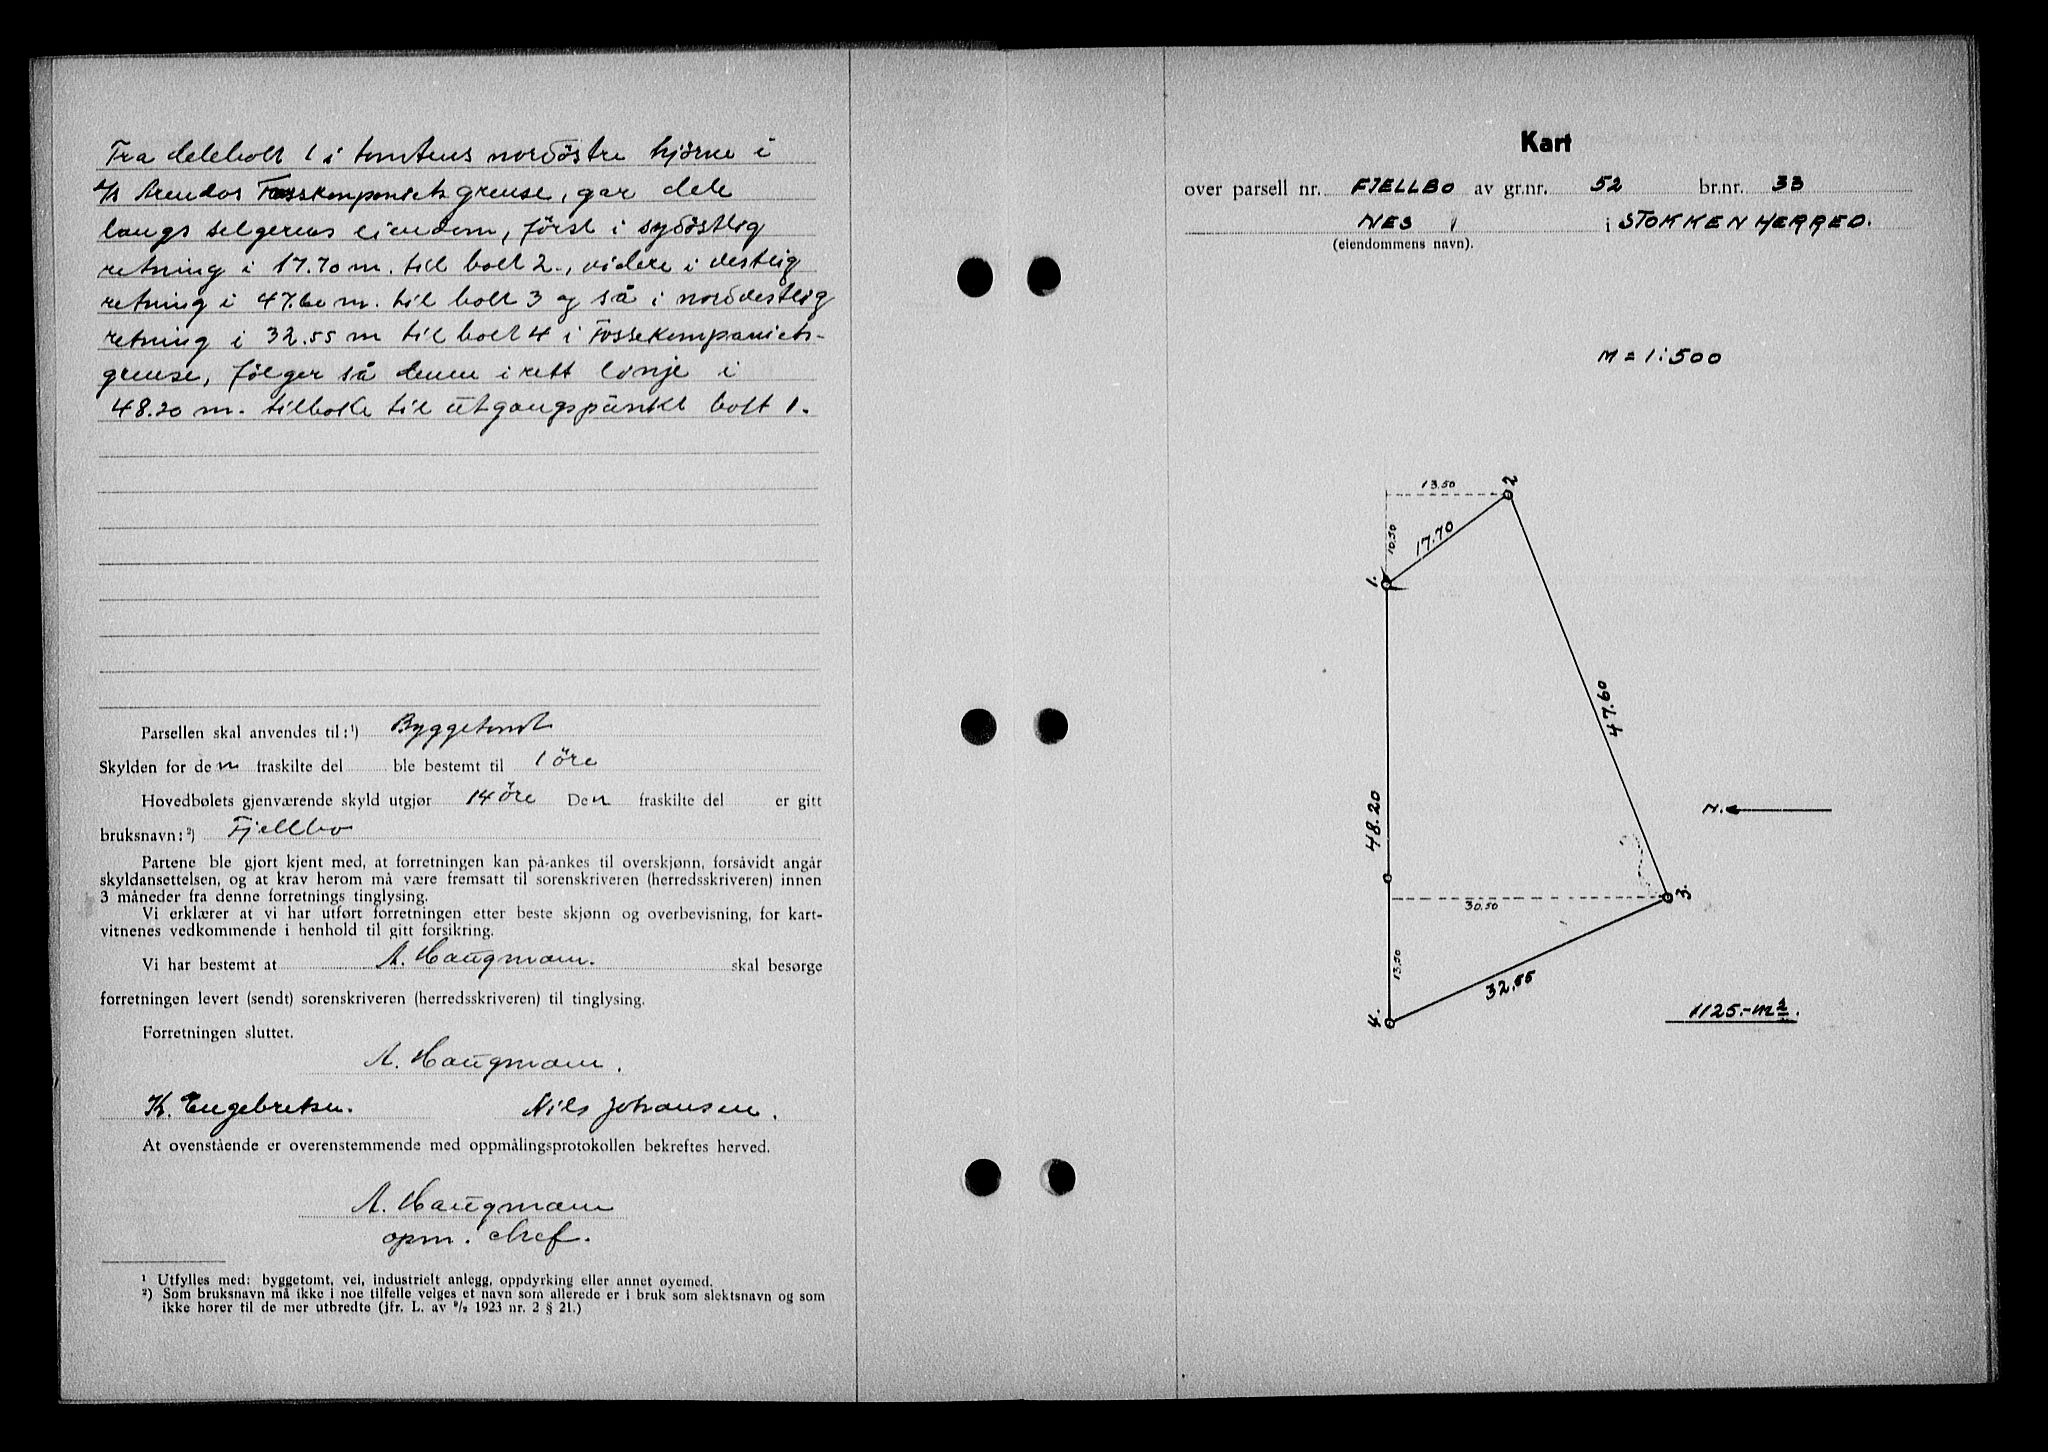 Fra delebolt 1 i tomtens nordöstre hjörne i
A/S Arendas Fossekompaniets grense, går dele
langs selgerens eiendom, först i sydöstlig
retning i 17.70 m. til bolt 2., videre i vestlig
retning i 47.60 m. til bolt 3 og så i nordvestlig
retning i 32.55 m til bolt 4 i Fossekompaniets-
grense, fölger så denne i rett linje i
48.20 m. tilbake til utgangspunkt bolt 1.
Parsellen skal anvendes til:¹) Byggetomt
Skylden for den fraskilte del ble bestemt til 1 öre
Hovedbølets gjenværende skyld utgjør 14 öre Den fraskilte del er gitt
bruksnavn:²) Fjellbo
Partene ble gjort kjent med, at forretningen kan på-ankes til overskjønn, forsåvidt angår
skyldansettelsen, og at krav herom må være fremsatt til sorenskriveren (herredsskriveren) innen
3 måneder fra denne forretnings tinglysing.
Vi erklærer at vi har utført forretningen etter beste skjønn og overbevisning, for kart-
vitnenes vedkommende i henhold til gitt forsikring.
Vi har bestemt at A. Haugmann. skal besørge
forretningen levert (sendt) sorenskriveren (herredsskriveren) til tinglysing.
Forretningen sluttet.
A. Haugmann.
K. Engebretsen. Nils Johansen.
At ovenstående er overenstemmende med oppmålingsprotokollen bekreftes herved.
A. Haugmann
opm. chef.
¹ Utfylles med: byggetomt, vei, industrielt anlegg, oppdyrking eller annet øyemed.
²) Som bruksnavn må ikke i noe tilfelle velges et navn som allerede er i bruk som slektsnavn og som
ikke hører til de mer utbredte (jfr. L. av ⁹/₂ 1923 nr. 2 § 21.)
Kart
over parsell nr. FJELLBO av gr.nr. 52 br.nr. 33
NES i STOKKEN HERRED.
(eiendommens navn).
M = 1:500
13.50
2
10.50
17.70
1.
47.60
48.20
N.
3.
30.50
13.50
32.55
4.
1125.- m².